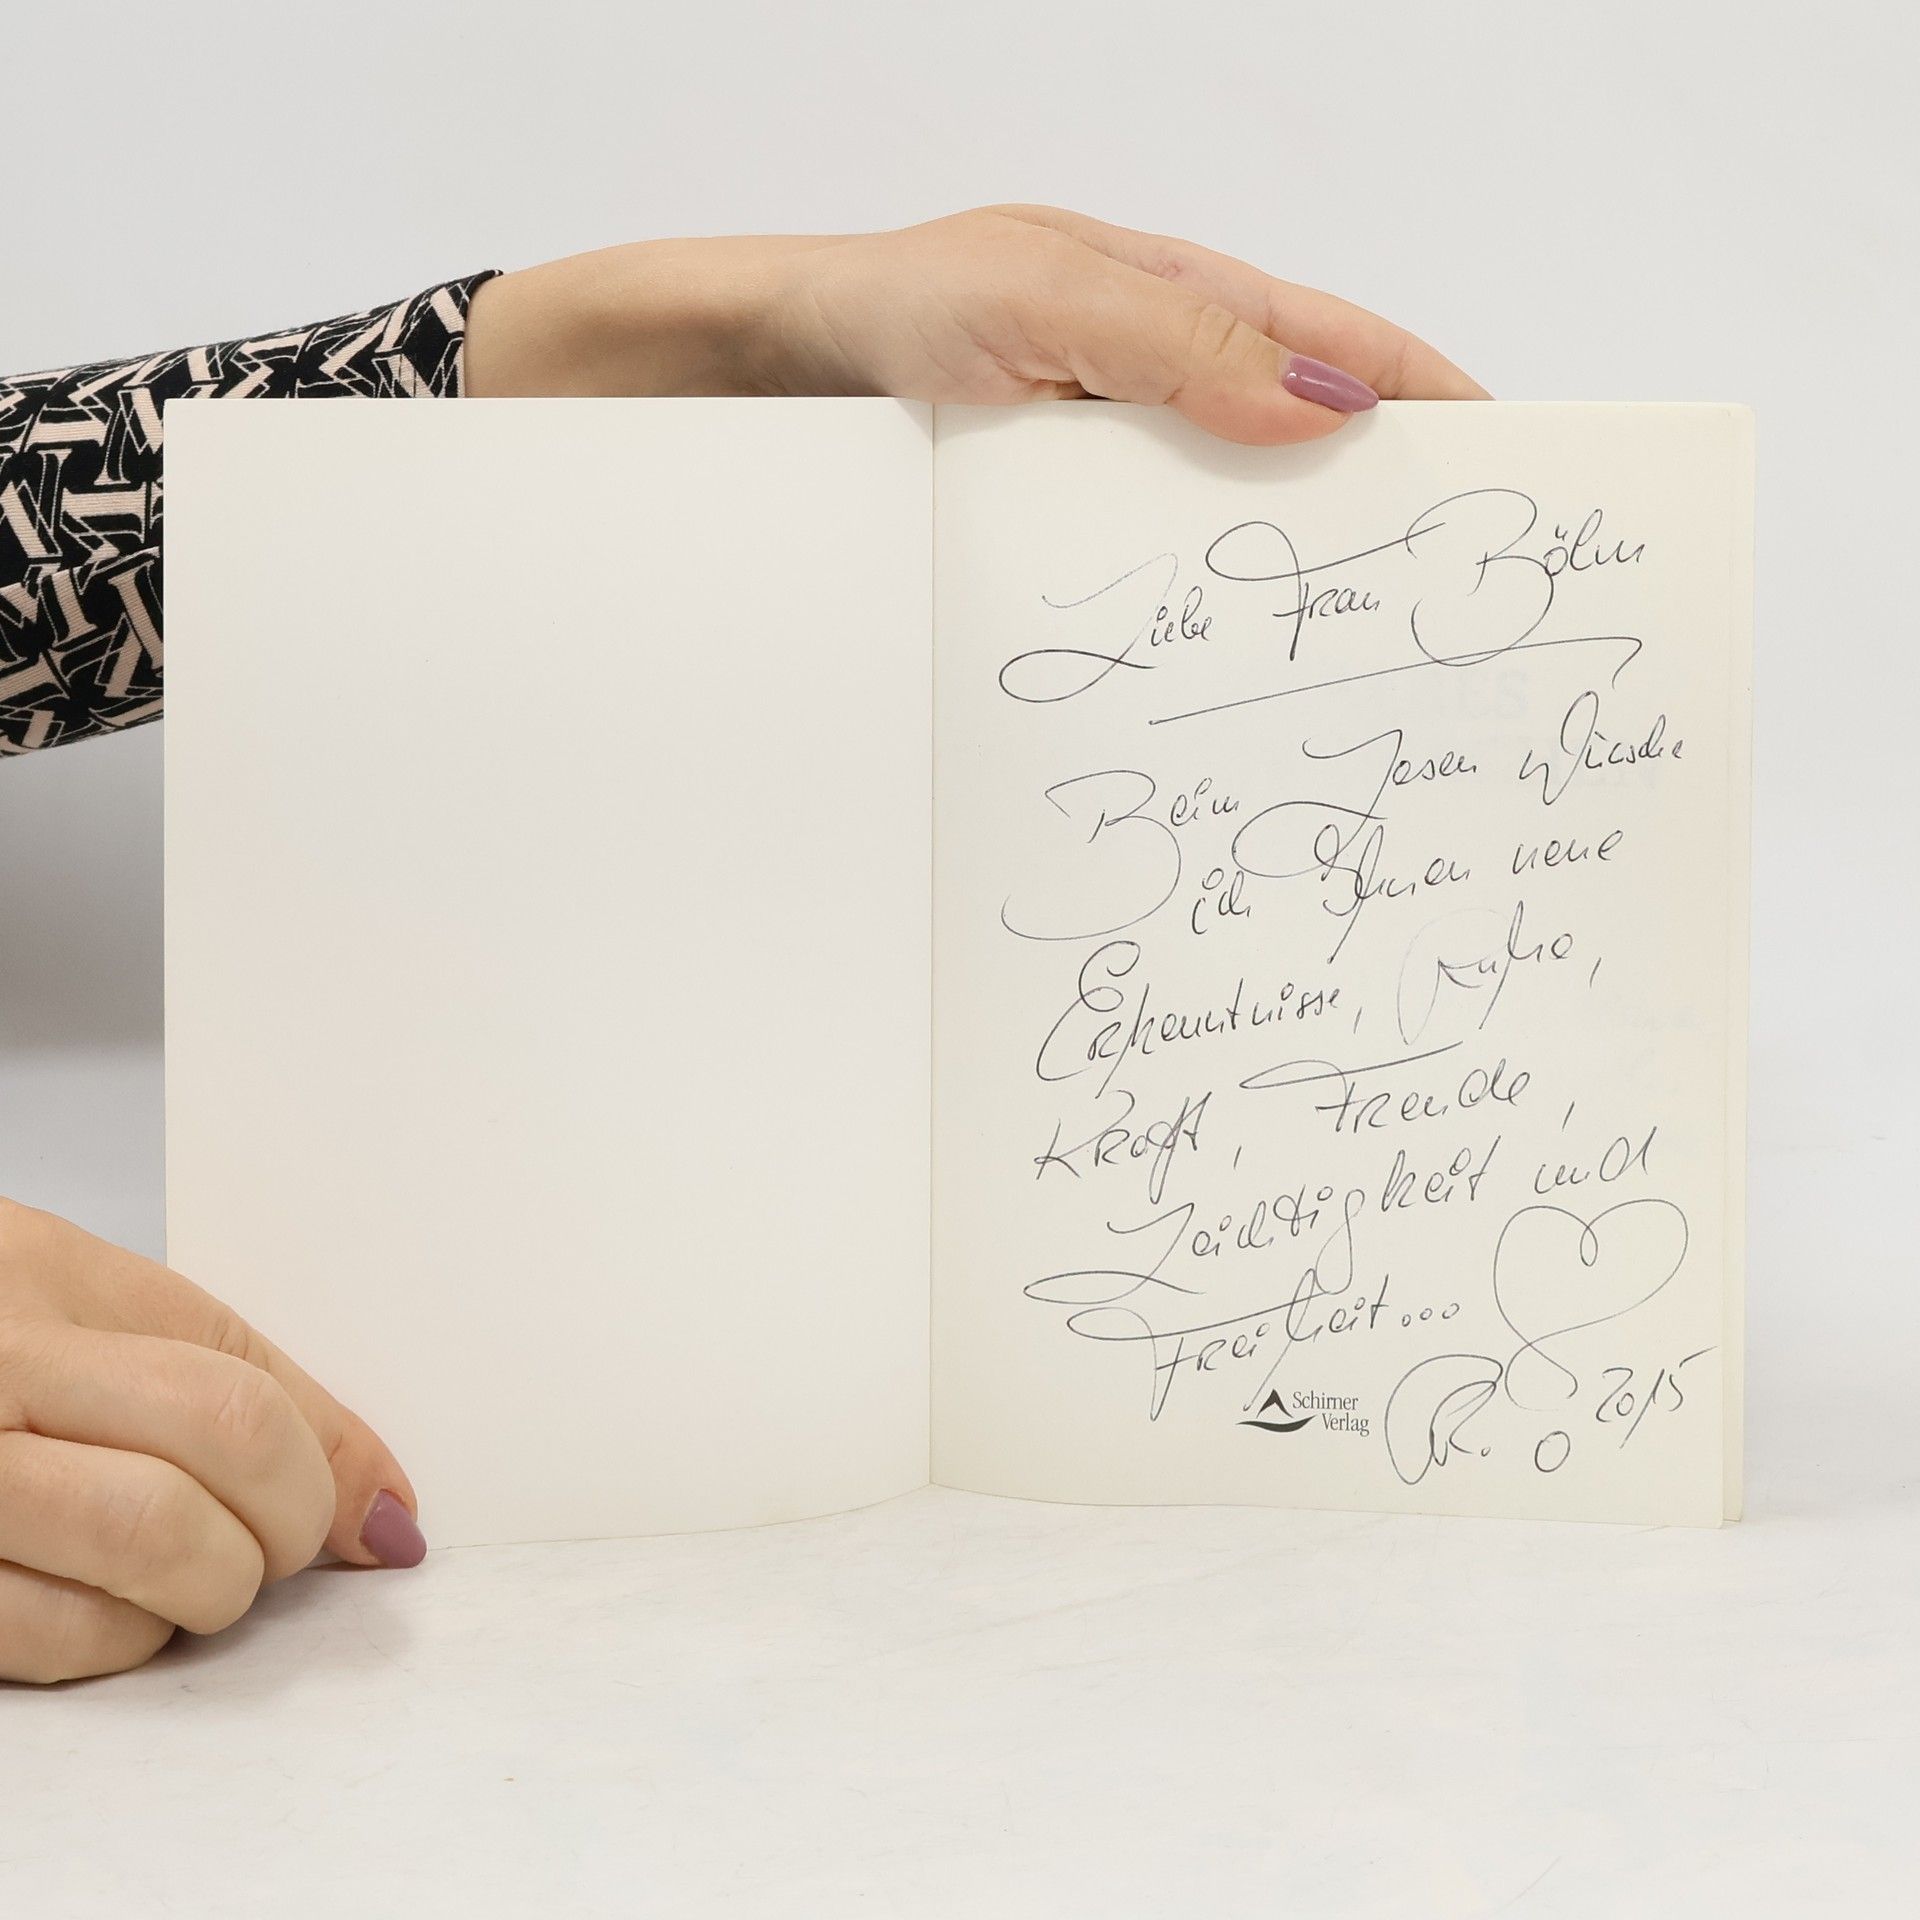 Liebe Frau Böhm
Beim Lesen wünsche
ich Ihnen neue
Erkenntnisse, Ruhe,
Kraft, Freude,
Leichtigkeit und
Freiheit...
Schirner
Verlag
R. 2015